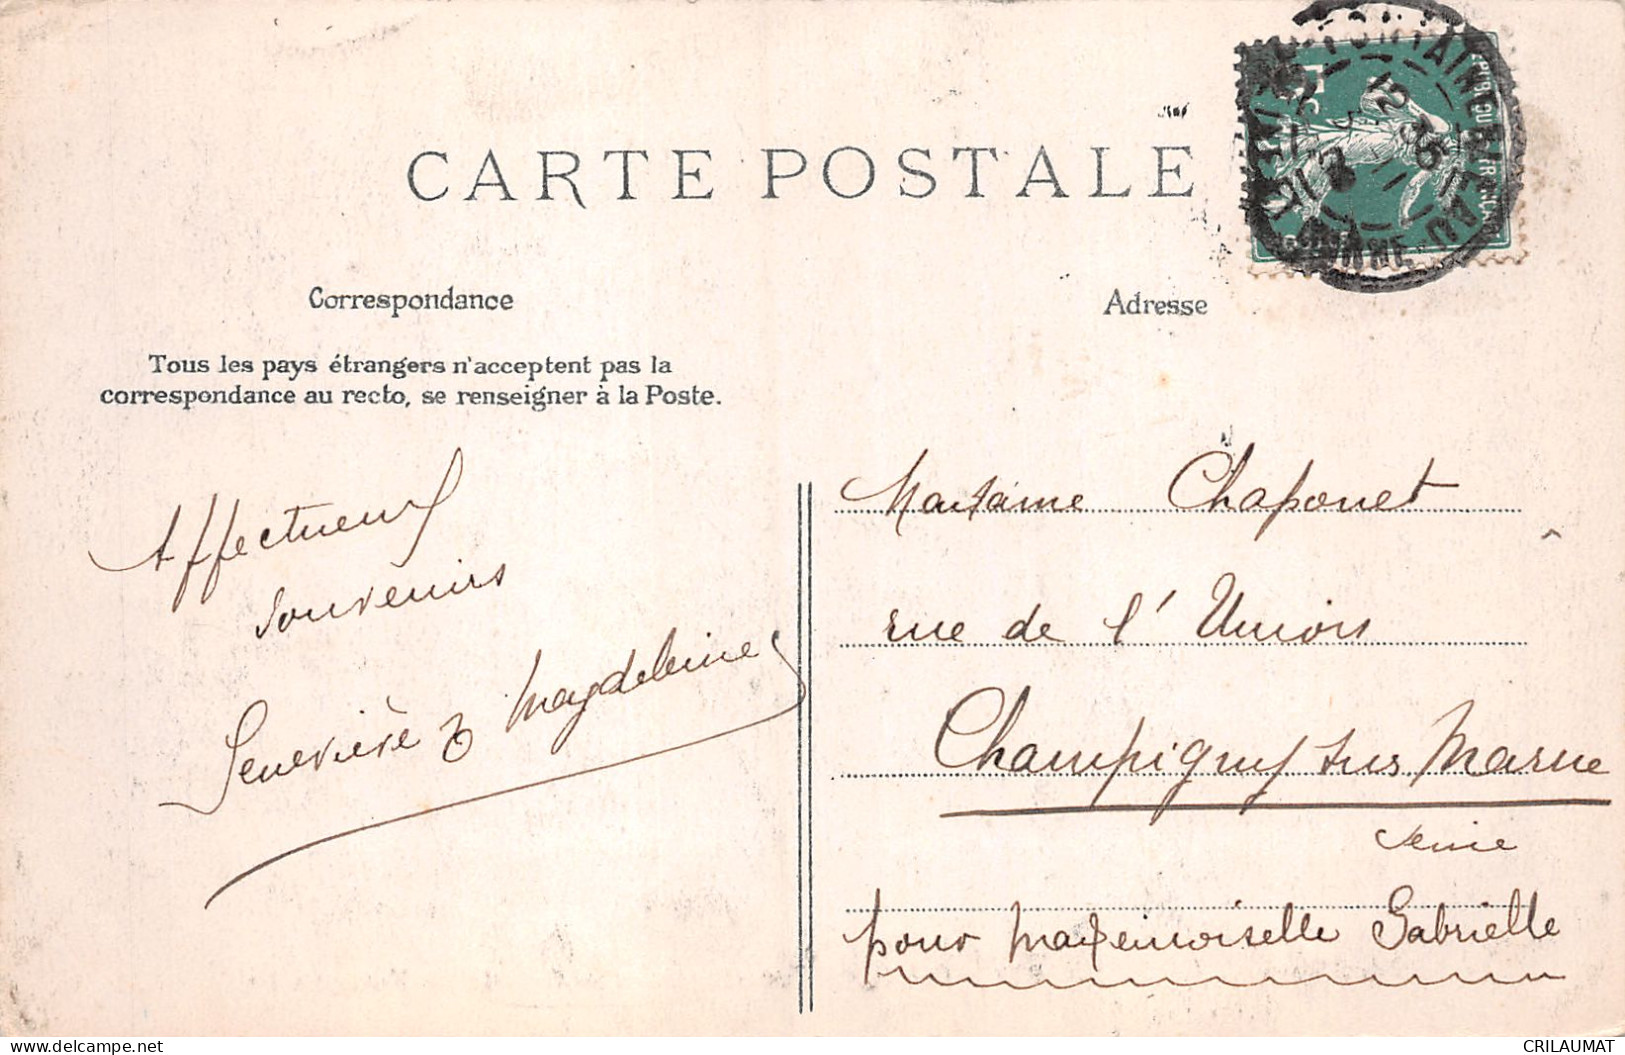 CARTE POSTALE
Correspondance
Tous les pays étrangers n'acceptent pas la
correspondance au recto, se renseigner à la Poste.
Affectueux
souvenirs
Geneviève & Magdeleine
Adresse
Madame Chaponet
rue de l'Union
Champigny sur Marne
Seine
pour Mademoiselle Gabrielle
www.delcampe.net
CRILAUMAT